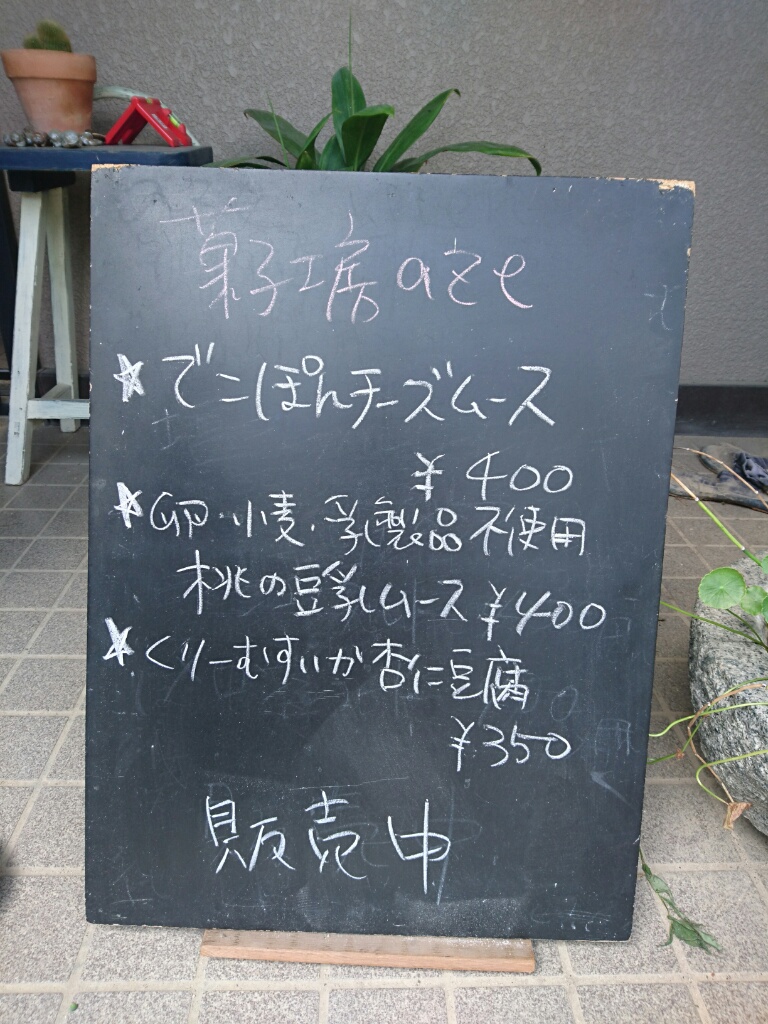 菓子工房aze
☆でこぽんチーズムース
¥400
☆卵・小麦・乳製品不使用
桃の豆乳ムース¥400
☆くりーむすいか杏仁豆腐
¥350
販売中